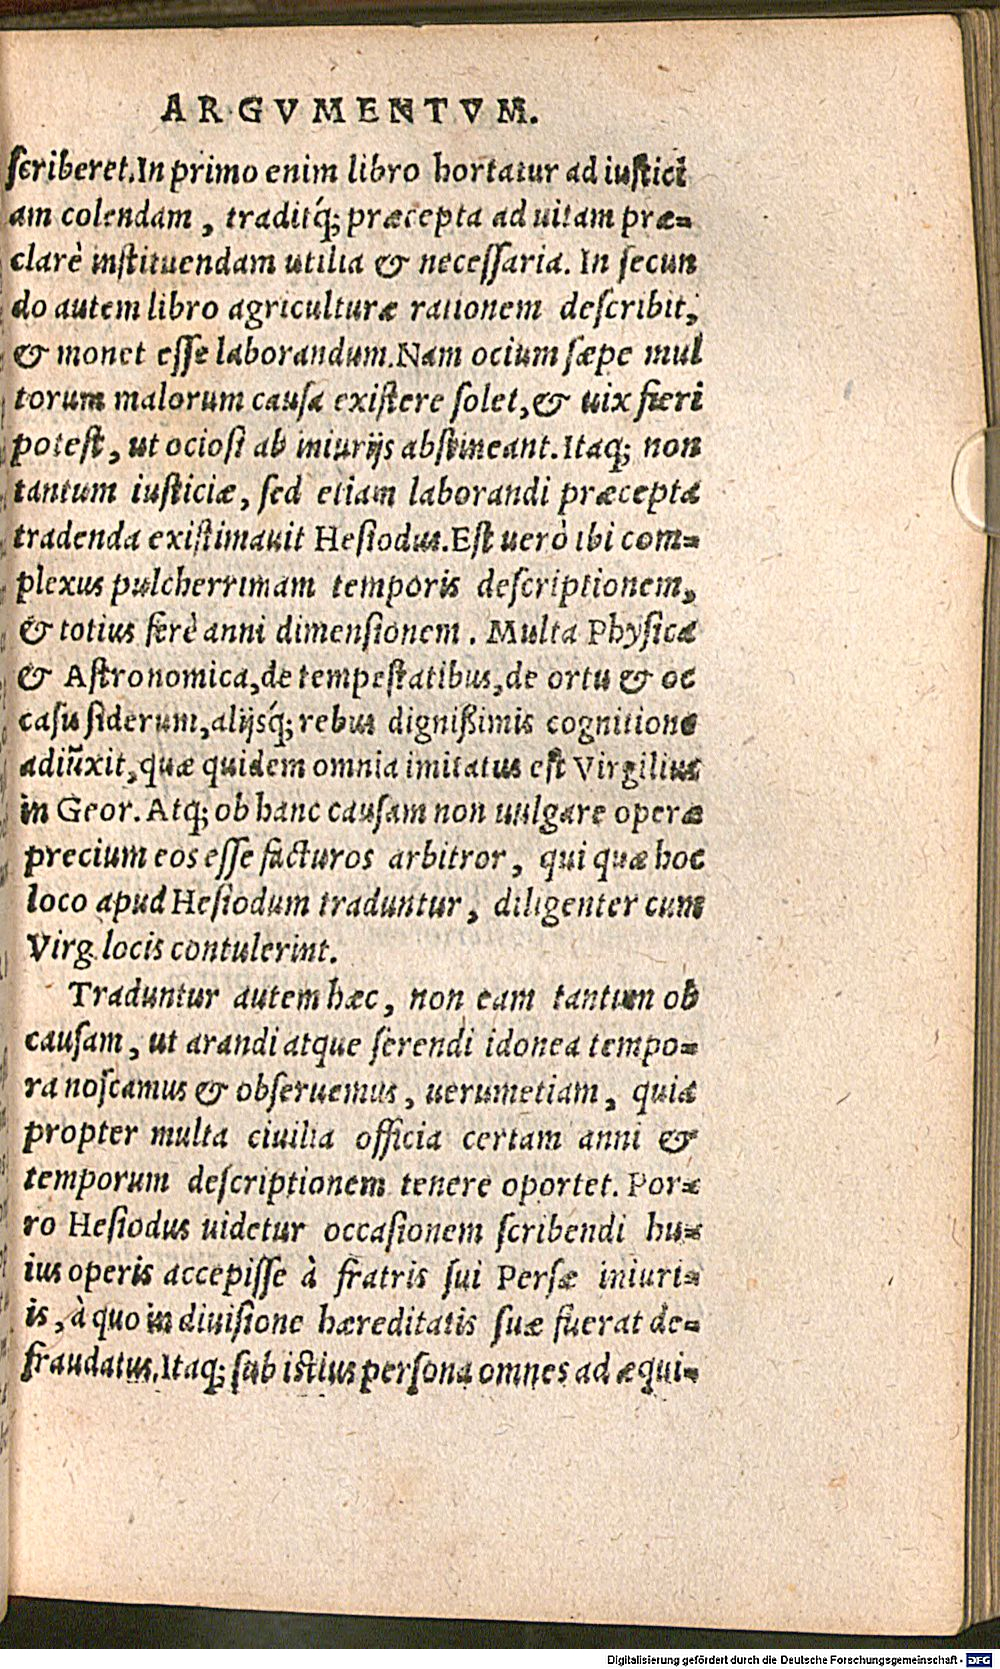 ARGVMENTVM.
ſcriberet.In primo enim libro hortatur ad iuſtici
am colendam, traditq́; præcepta ad uitam præ-
clarè inſtituendam utilia & neceſſaria. In ſecun
do autem libro agriculturæ rationem deſcribit,
& monet eſſe laborandum.Nam ocium ſæpe mul
torum malorum cauſa exiſtere ſolet,& uix fieri
poteſt, ut ocioſi ab iniurijs abſtineant.Itaq; non
tantum iuſticiæ, ſed etiam laborandi præcepta
tradenda exiſtimauit Heſiodus.Eſt uerò ibi com-
plexus pulcherrimam temporis deſcriptionem,
& totius ferè anni dimenſionem. Multa Phyſica
& Aſtronomica,de tempeſtatibus,de ortu & oc
caſu ſiderum,alijsq́; rebus digniſſimis cognitione
adiũxit,quæ quidem omnia imitatus eſt Virgilius
in Geor. Atq; ob hanc cauſam non uulgare operæ
precium eos eſſe facturos arbitror, qui quæ hoc
loco apud Heſiodum traduntur, diligenter cum
Virg. locis contulerint.
Traduntur autem hæc, non eam tantum ob
cauſam, ut arandi atque ſerendi idonea tempo-
ra noſcamus & obſeruemus, uerumetiam, quia
propter multa ciuilia officia certam anni &
temporum deſcriptionem tenere oportet. Por-
ro Heſiodus uidetur occaſionem ſcribendi hu-
ius operis accepiſſe à fratris ſui Perſæ iniuri-
is, à quo in diuiſione hæreditatis ſuæ fuerat de-
fraudatus.Itaq; ſub iſtius perſona omnes ad æqui-
Digitalisierung gefördert durch die Deutsche Forschungsgemeinschaft - DFG